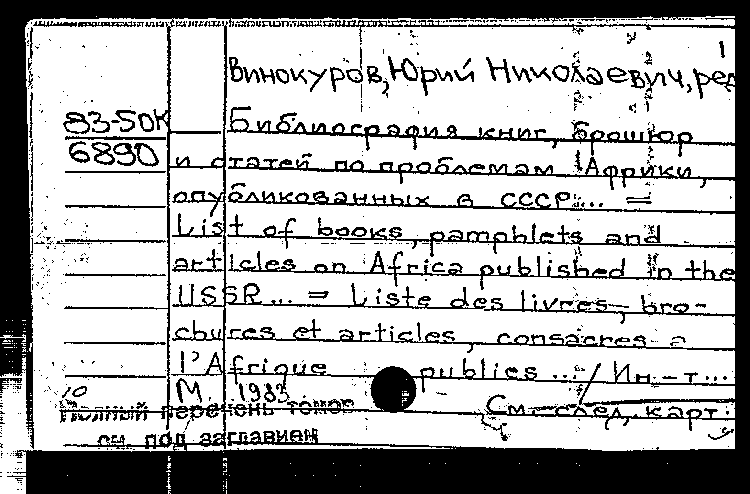 1
Винокуров, Юрий Николаевич, ред
83-50К
6890
Библиография книг, брошюр
и статей по проблемам Африки,
опубликованных в СССР... =
List of books, pamphlets and
articles on Africa published in the
USSR... = Liste des livres, bro-
chures et articles, consacres a
l'Afrique publies .../ Ин.-т...
М., 1983
10
Полный перечень томов
см. под заглавием
См. след. карт.